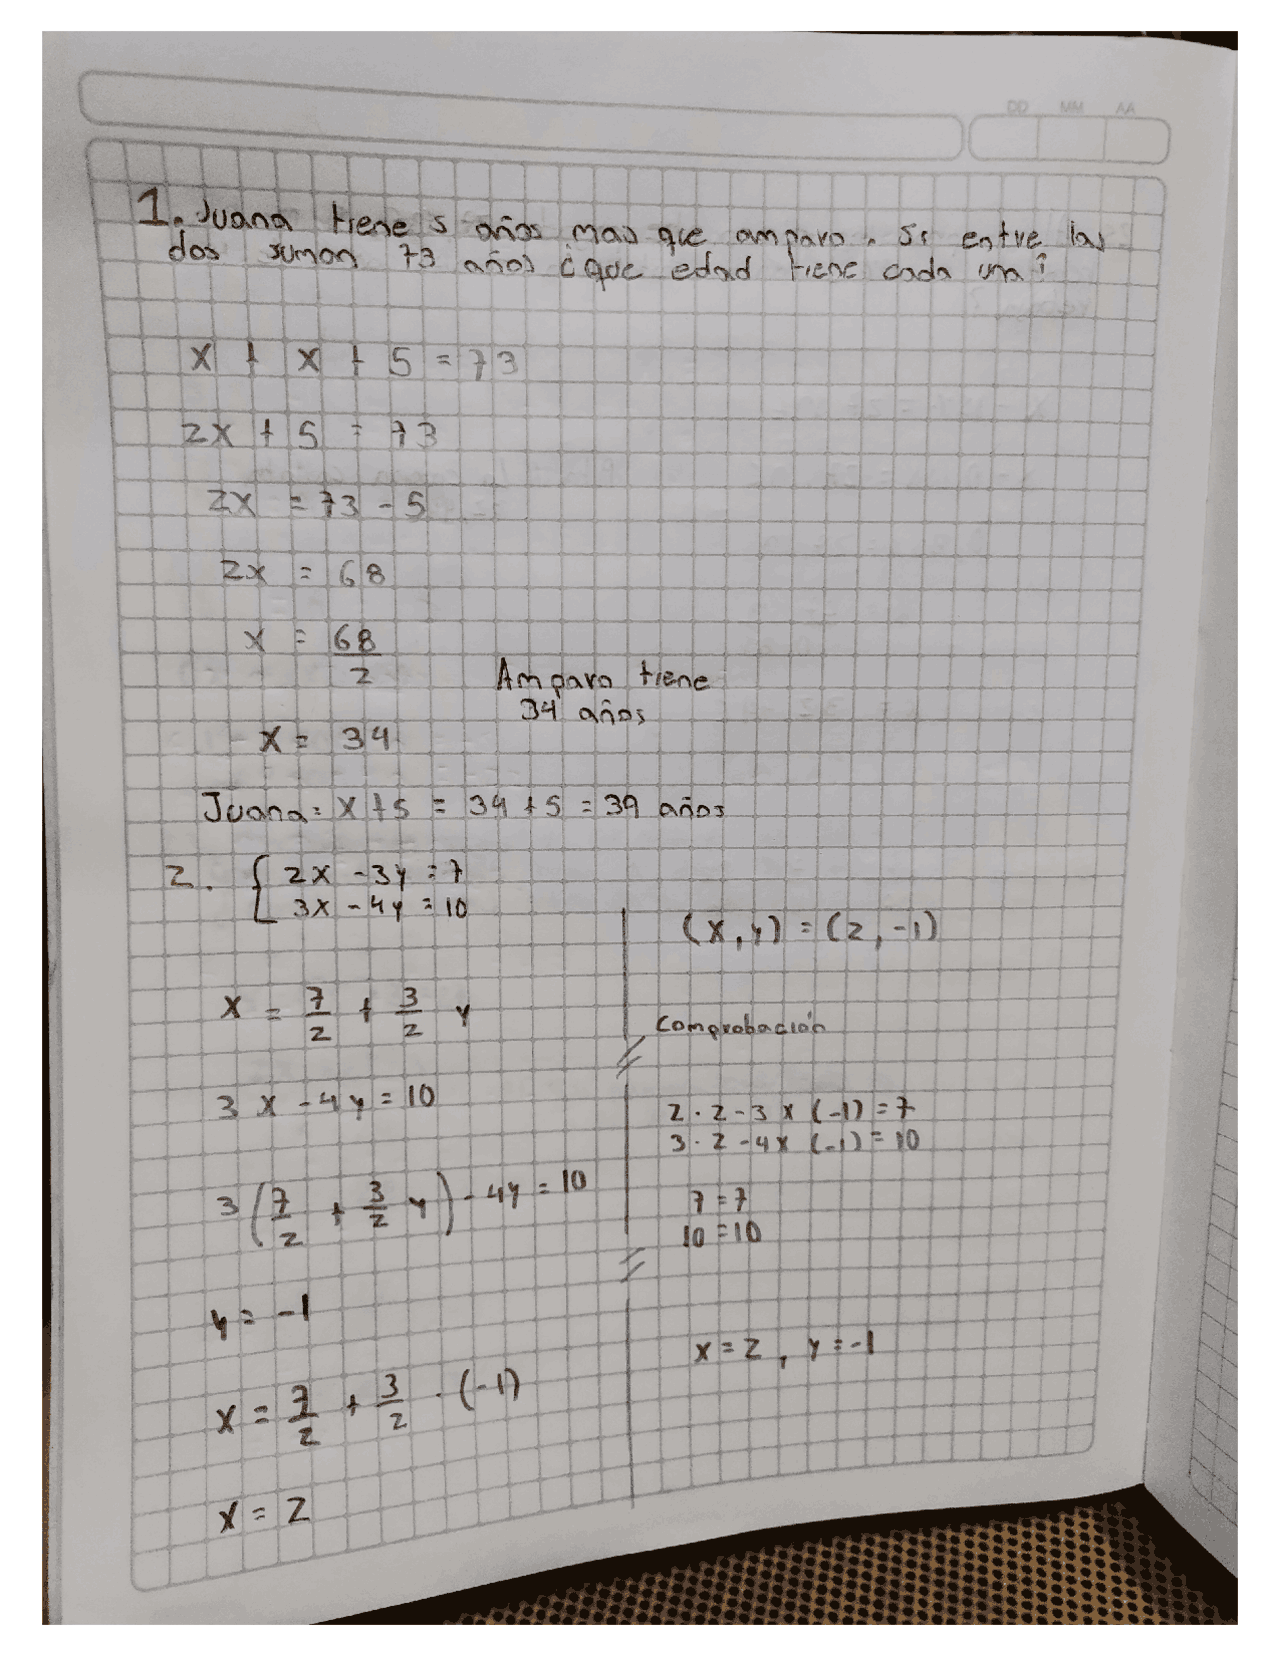 DD MM AA
1. Juana tiene 5 años mas que amparo. Si entre las
dos suman 73 años ¿que edad tiene cada una?
x + x + 5 = 73
2x + 5 = 73
2x = 73 - 5
2x = 68
x = 68/2
Amparo tiene
34 años
x = 34
Juana: x + 5 = 34 + 5 = 39 años
2. { 2x - 3y = 7
3x - 4y = 10
x = 7/2 + 3/2 y
3x - 4y = 10
3(7/2 + 3/2 y) - 4y = 10
y = -1
x = 7/2 + 3/2 · (-1)
x = 2
(x, y) = (2, -1)
Comprobación
2 · 2 - 3 x (-1) = 7
3 · 2 - 4 x (-1) = 10
7 = 7
10 = 10
x = 2, y = -1